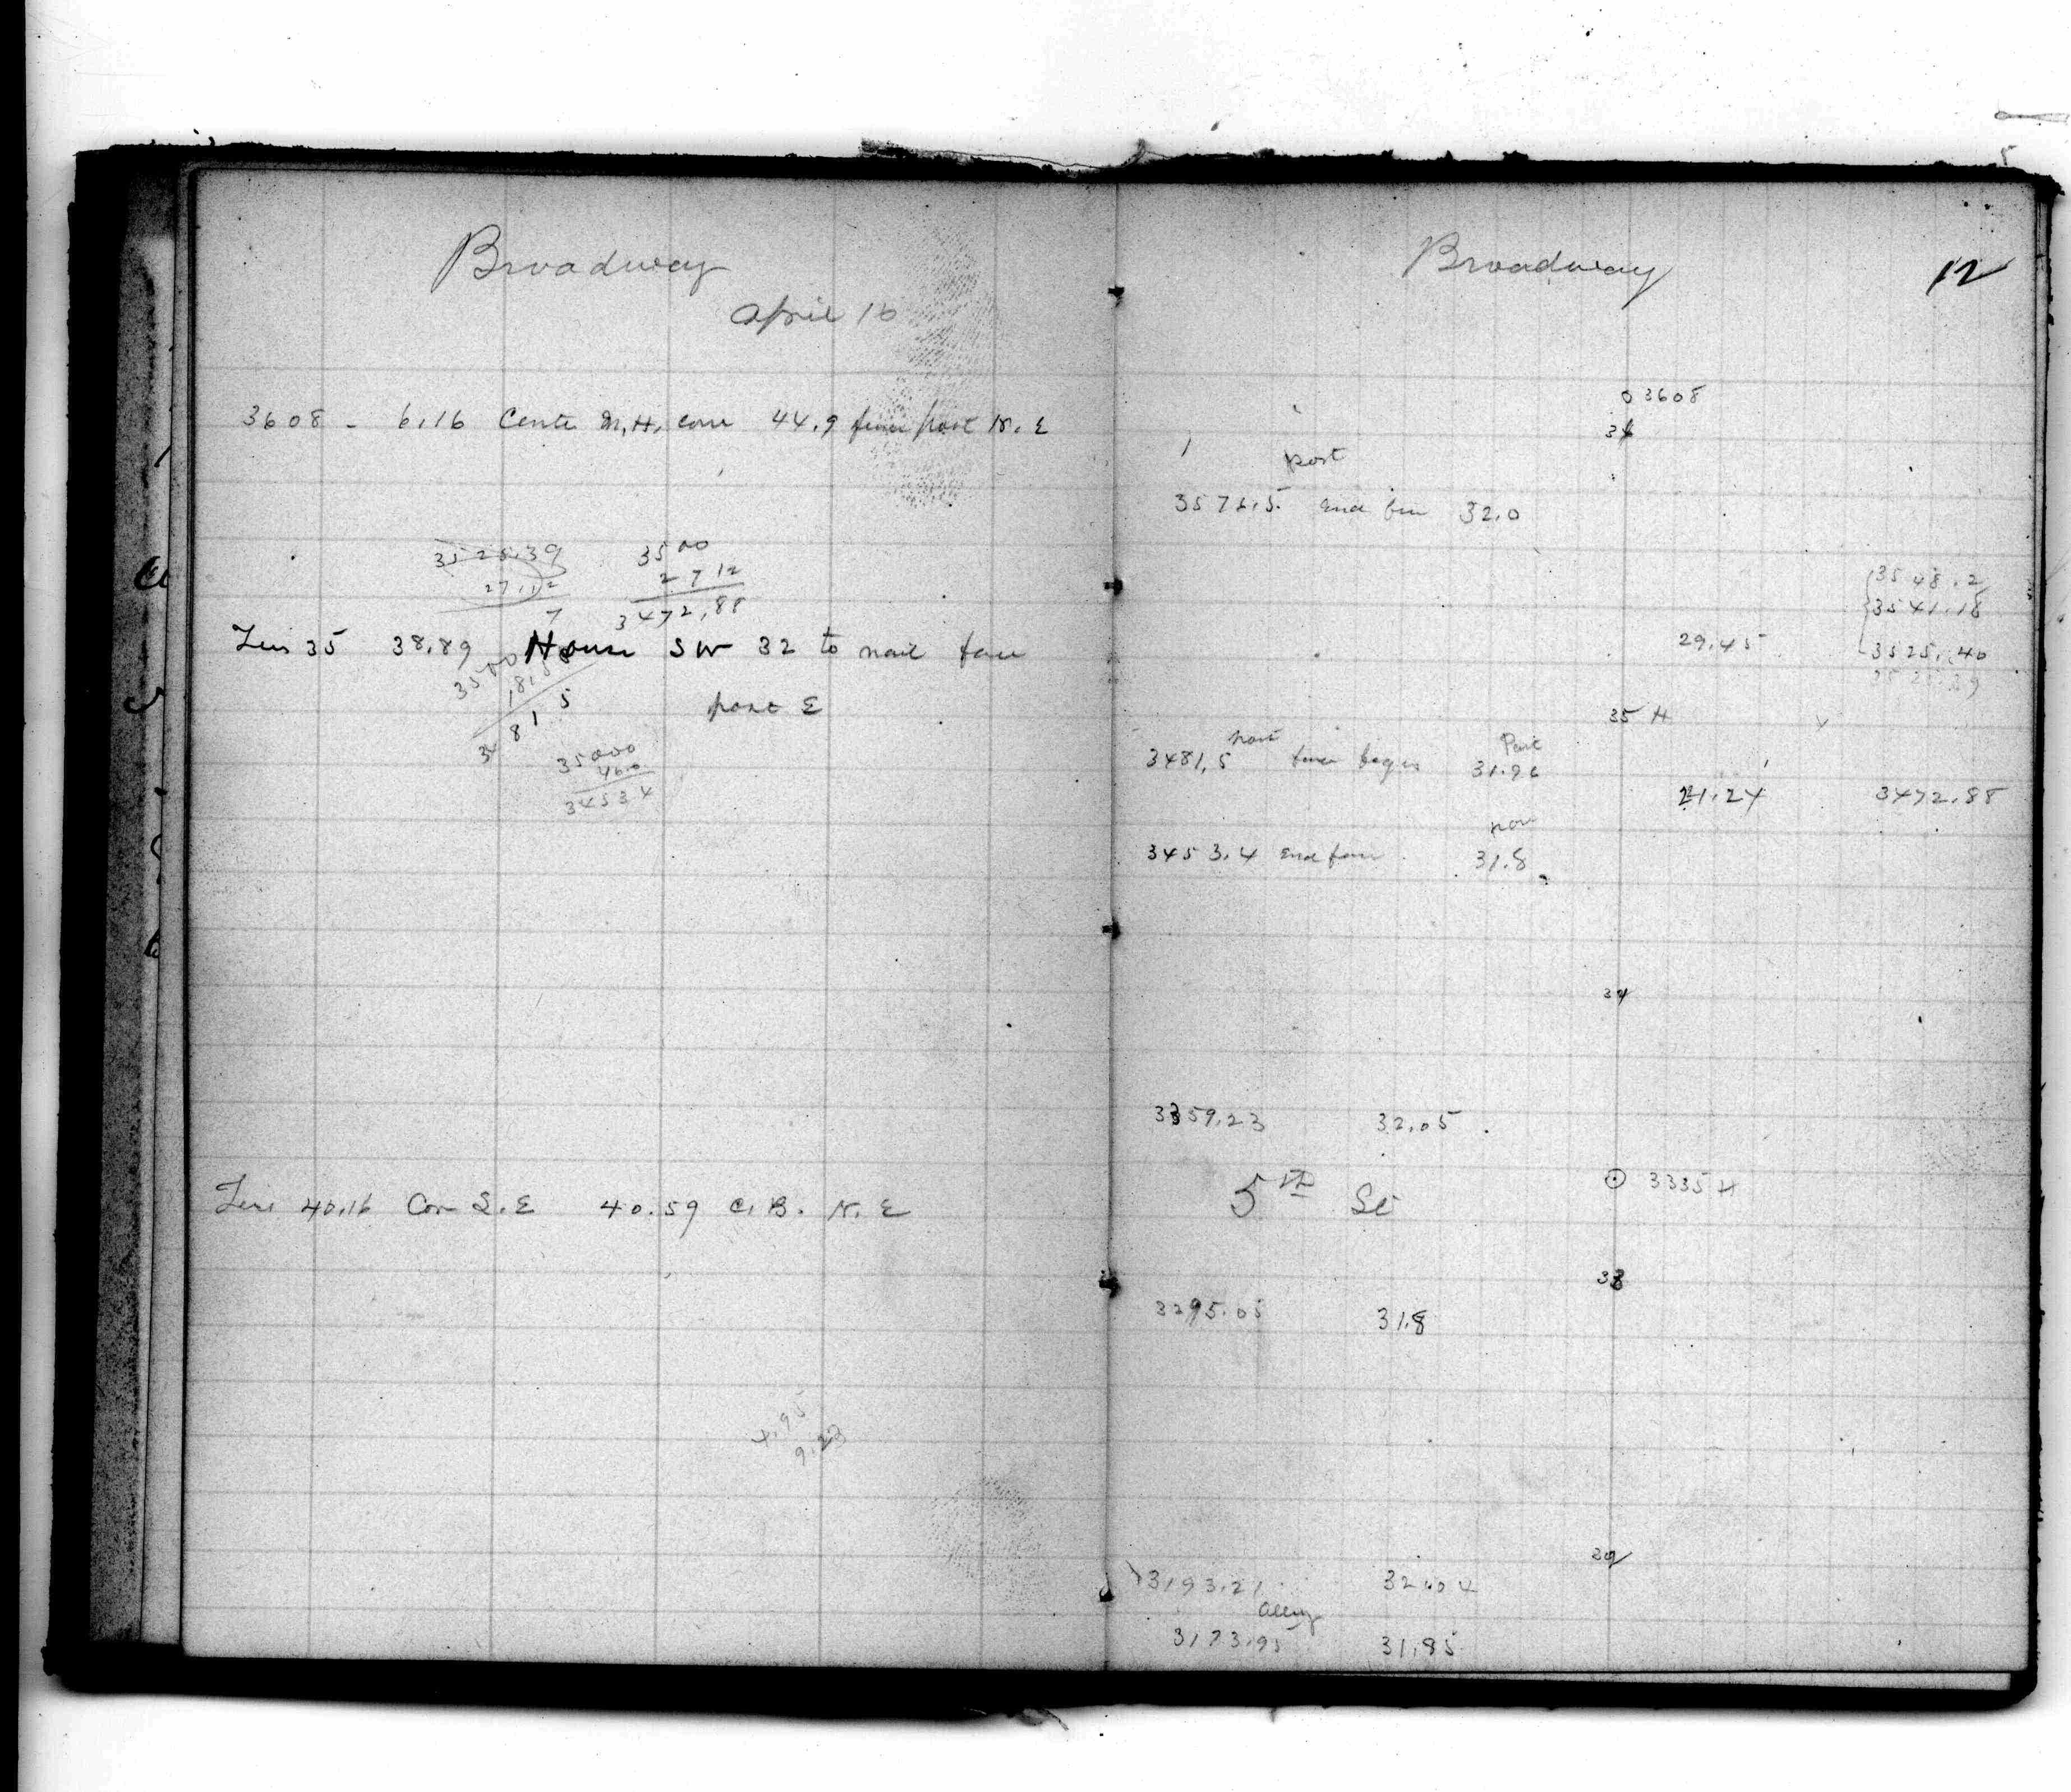 Broadway
April 16
3608 - 6.16 Cente M.H. cove 44.9 fence post N. E
3525.39
27.12
7
3500
27 12
3472.88
35 38.89 House SW 32 to nail fence
post E
3500
18.5
34 81 5
35000
46.6
34534
40.16 Cor S. E 40.59 C. B. N. E
4.95
9.23
Broadway
12
03608
36
post
3576.5 end fen 32.0
3548.2
3541.18
29.45 3525.40
3525.39
35 H
post Post
3481.5 fence begins 31.96
21.24 3472.88
3453.4 End fence 31.8
34
3359.23 32.05
5th St
3335 H
33
3295.05 31.8
32
3193.21 32.04
alley
3173.95 31.95